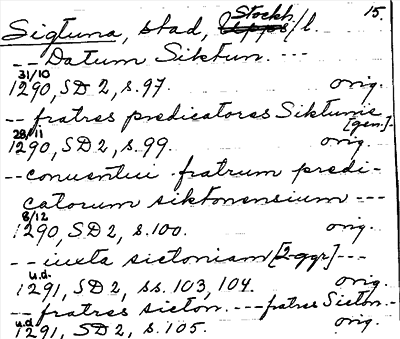 15.
Sigtuna, stad, Stockh/l.
-- Datum Siktun. ---
31/10
1290, SD 2, s. 97. orig.
-- fratres predicatores Siktunie [gen.] -
28/11
1290, SD 2, s. 99. orig.
-- conuentui fratrum predi-
catorum siktonensium ---
8/12
1290, SD 2, s. 100. orig.
-- iuxta sictoniam [2 ggr] ---
u.d.
1291, SD 2, ss. 103, 104. orig.
-- fratres sicton. --- fratres Sicton. -
u.d
1291, SD 2, s. 105. orig.